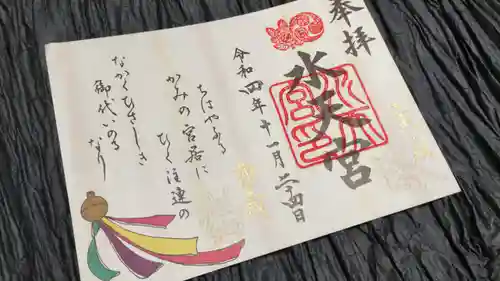 奉拝
水天宮
令和四年十一月二十四日
ちはやふる
かみの宮居に
ひく注連の
なかくひさしき
御代いのる
なり